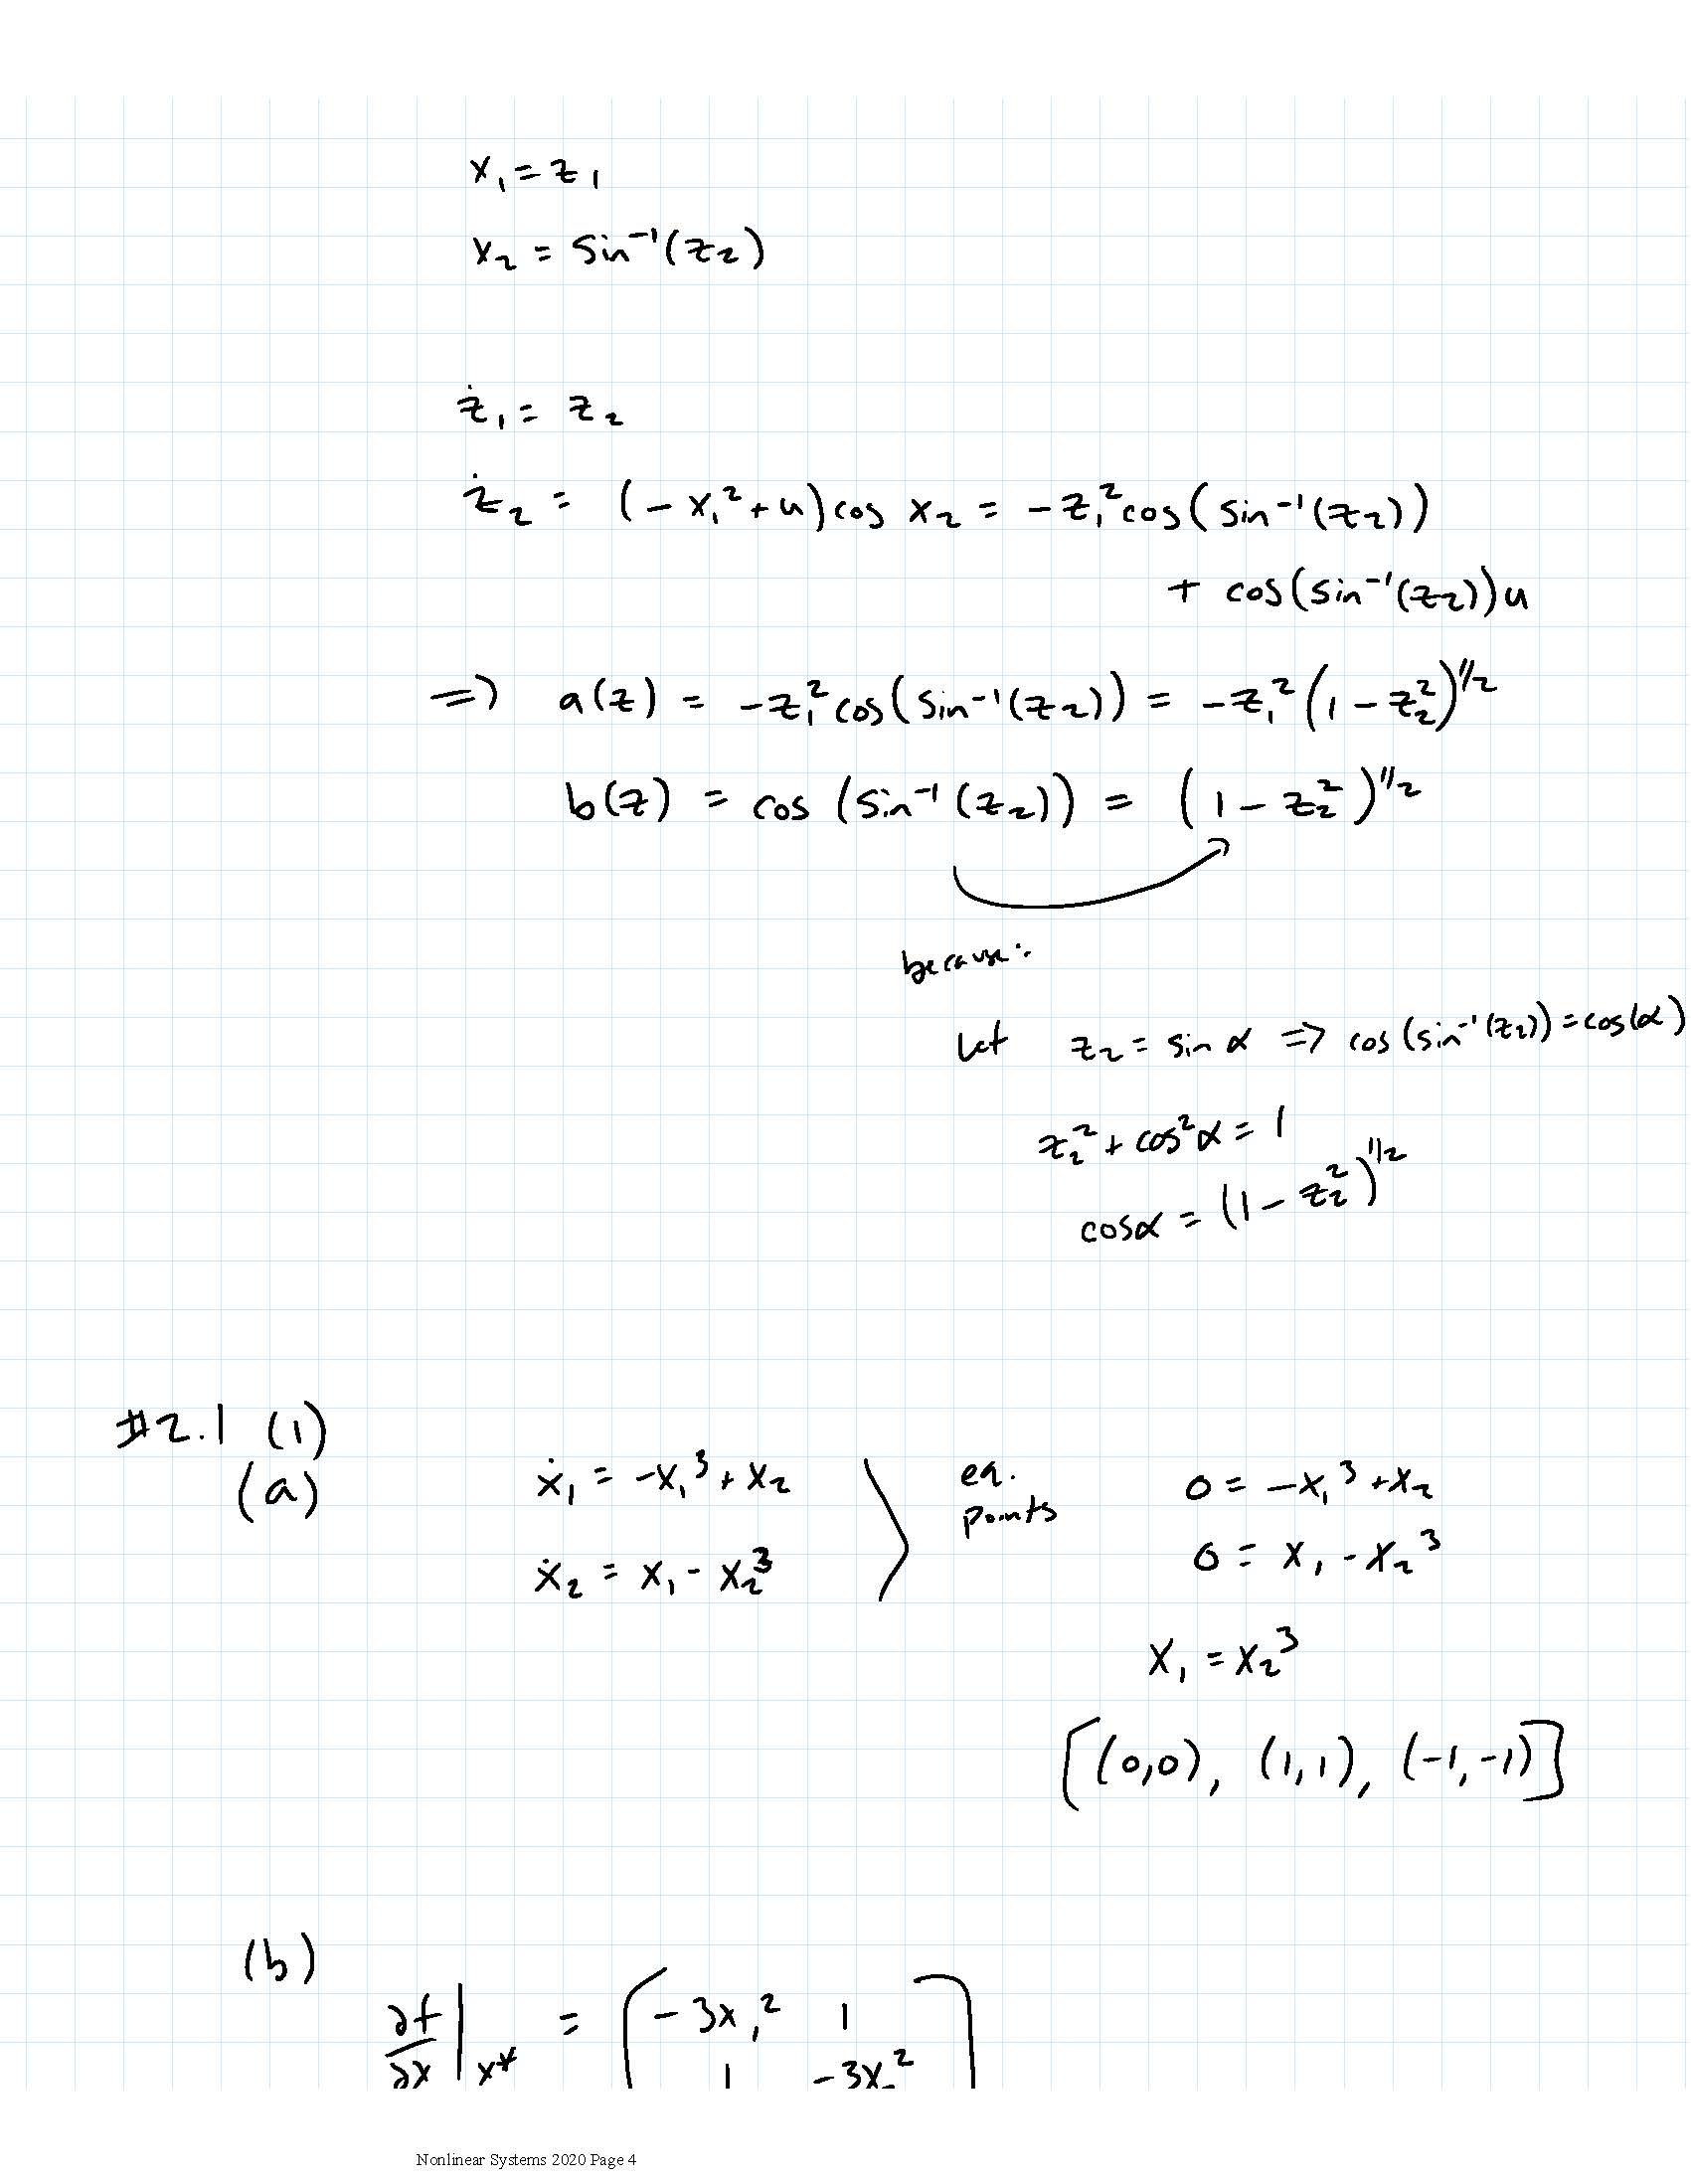 x₁ = z₁
x₂ = sin⁻¹(z₂)
ż₁ = z₂
ż₂ = (-x₁² + u) cos x₂ = -z₁² cos(sin⁻¹(z₂))
+ cos(sin⁻¹(z₂))u
=> a(z) = -z₁² cos(sin⁻¹(z₂)) = -z₁² (1 - z₂²)^1/2
b(z) = cos (sin⁻¹(z₂)) = (1 - z₂²)^1/2
because:
Let z₂ = sin α => cos(sin⁻¹(z₂)) = cos(α)
z₂² + cos²α = 1
cosα = (1 - z₂²)^1/2
#2.1 (1)
(a) ẋ₁ = -x₁³ + x₂ eq. points 0 = -x₁³ + x₂
ẋ₂ = x₁ - x₂³ 0 = x₁ - x₂³
x₁ = x₂³
[(0,0), (1,1), (-1,-1)]
(b)
∂f/∂x |x* = [ -3x₁² 1
1 -3x₂² ]
Nonlinear Systems 2020 Page 4